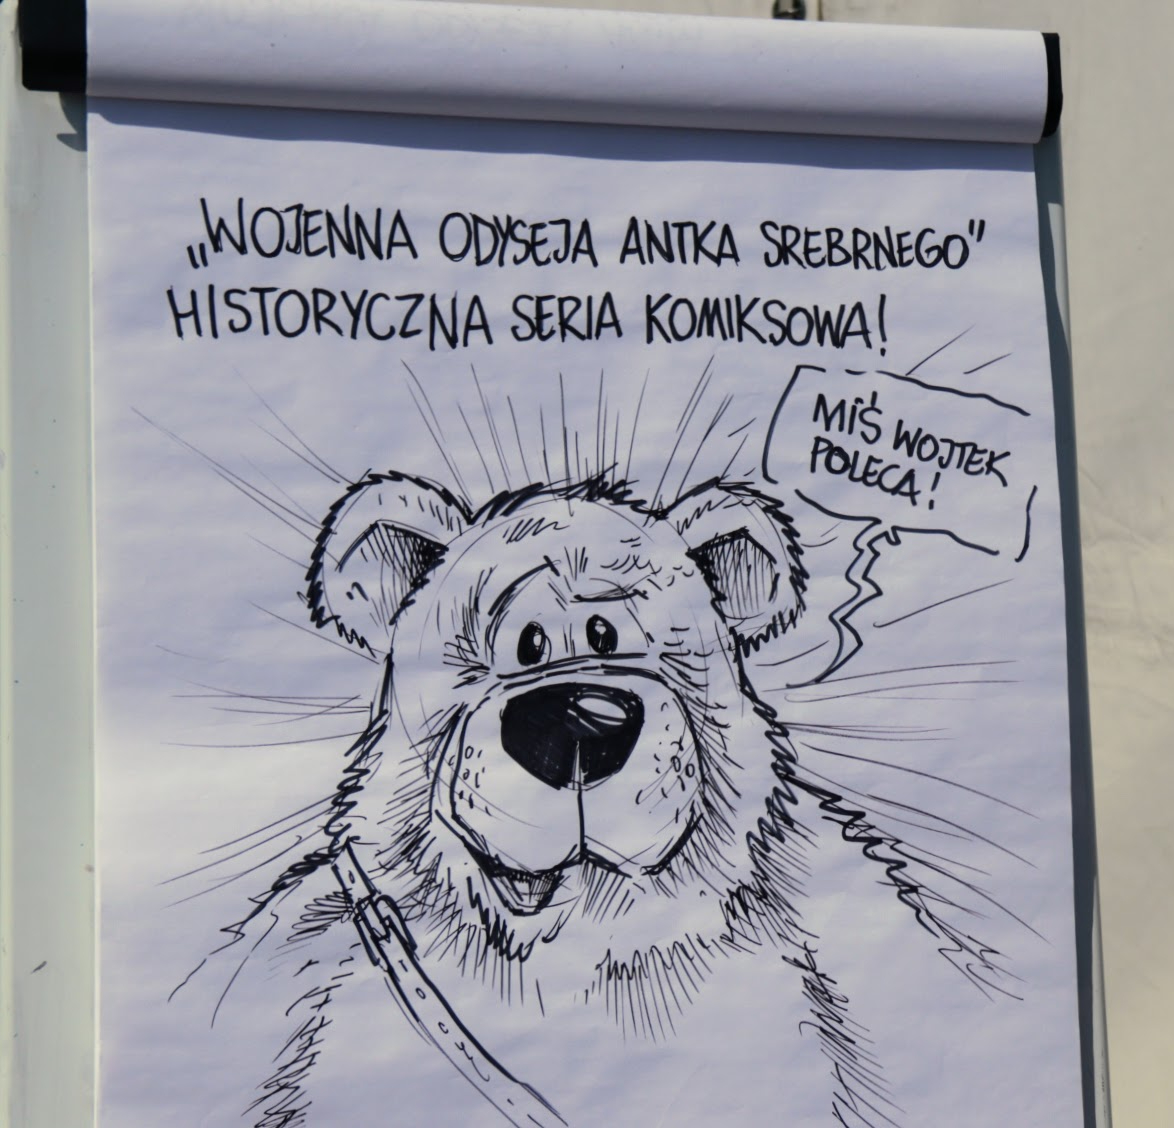 „WOJENNA ODYSEJA ANTKA SREBRNEGO”
HISTORYCZNA SERIA KOMIKSOWA!
MIŚ WOJTEK
POLECA!